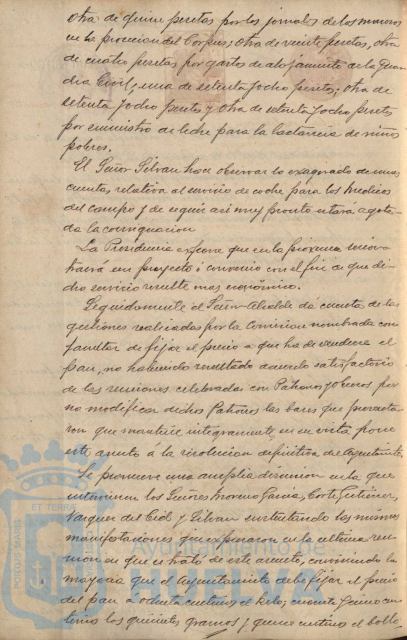 otra de quince pesetas por los jornales de los maceros
en la procesion del Corpus; otra de veinte pesetas, otra
de cuatro pesetas por gastos de alojamiento de la Guar
dia Civil; una de setenta y ocho pesetas, otra de
setenta y ocho pesetas y otra de setenta y ocho pesetas
por suministro de leche para la lactancia de niños
pobres.
El Señor Silvan hace observar lo exagerado de unas
cuentas, relativa al servicio de coche para los Medicos
del campo y de seguir asi muy pronto estará agota-
da la consignacion
La Presidencia expone que en la próxima sesion
traerá un proyecto ó convenio con el fin de que di-
cho servicio resulte mas económico.
Seguidamente el Señor Alcalde dá cuenta de las
gestiones realizadas por la Comision nombrada con
facultar de fijar el precio a que ha de venderse el
pan, no habiendo resultado acuerdo satisfactorio
de las reuniones celebradas con Patronos y Obreros por
no modificar dichos Patronos las bases que presenta
ron que mantiene integramente, en su vista pone
este asunto á la resolucion definitiva del Ayuntamiento.
Se promueve una amplia discusion en la que
intervienen los Señores Moreno Garcia, Corte Gutierrez,
Vazquez del Cid y Silvan sustentando las mismas
manifestaciones que expusieron en la ultima reu
nion en que se trató de este asunto, conviniendo la
mayoria que el Ayuntamiento debe fijar el precio
del pan a ochenta centimos el kilo, cuarenta y cinco cen
timos los quinientos gramos y quince centimos el bollo,
PORTUS MARIS ET TERRA
Ayuntamiento de
HUELVA